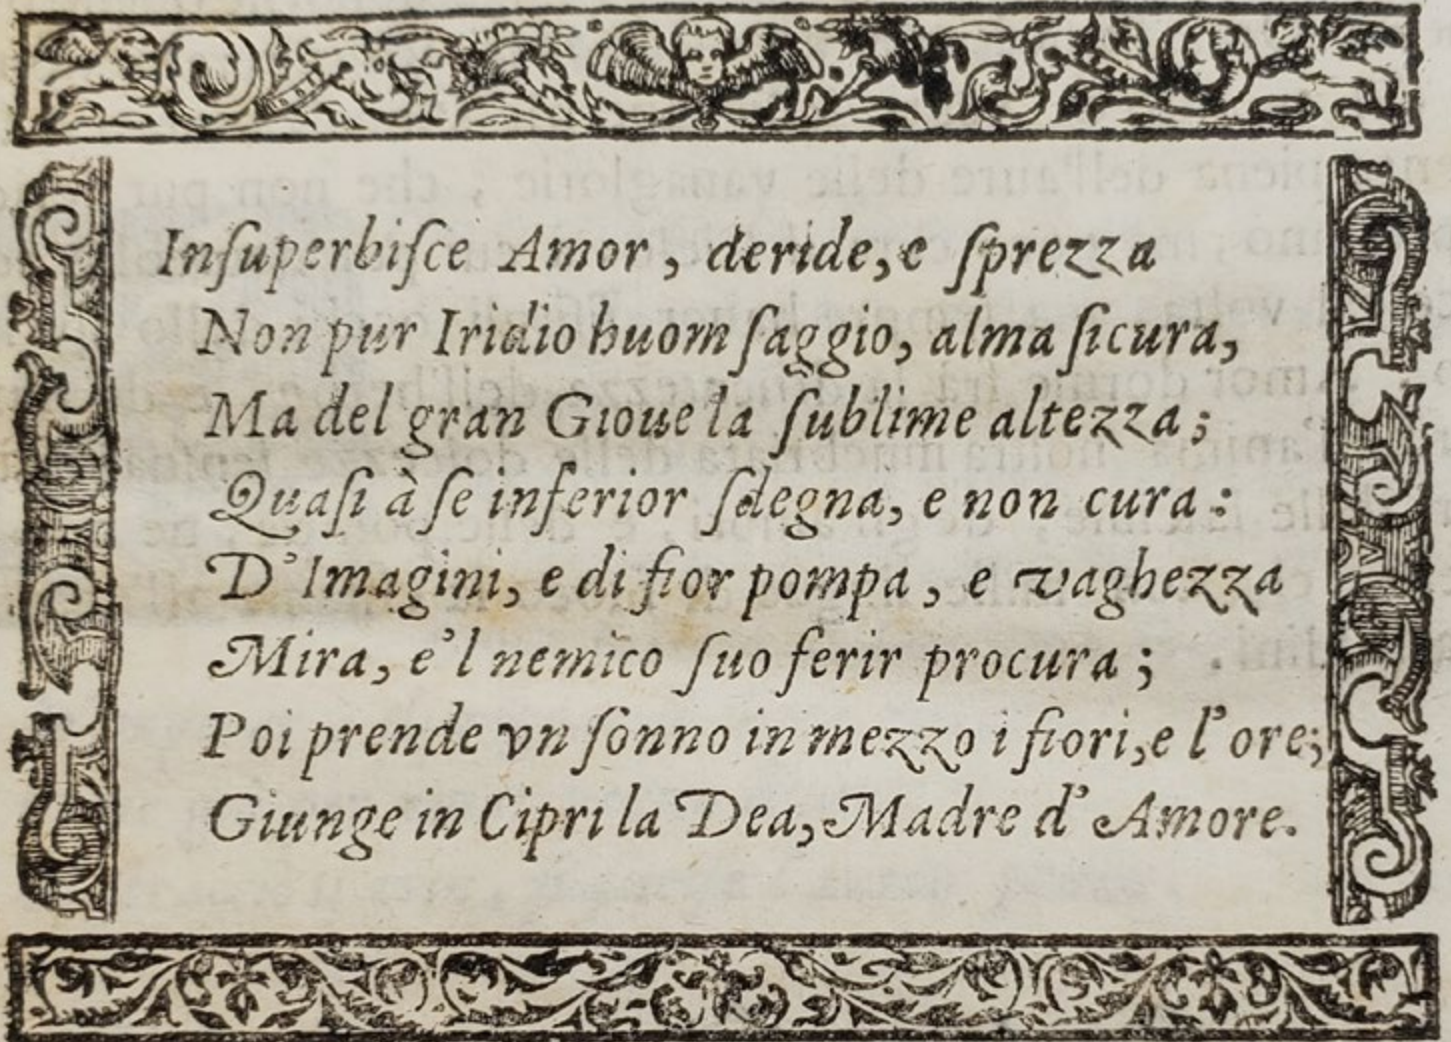 Inſuperbiſce Amor, deride, e ſprezza
Non pur Iridio huom ſaggio, alma ſicura,
Ma del gran Gioue la ſublime altezza;
Quaſi à ſe inferior ſdegna, e non cura:
D'Imagini, e di fior pompa, e vaghezza
Mira, e'l nemico ſuo ferir procura;
Poi prende vn ſonno in mezzo i fiori, e l'ore;
Giunge in Cipri la Dea, Madre d'Amore.